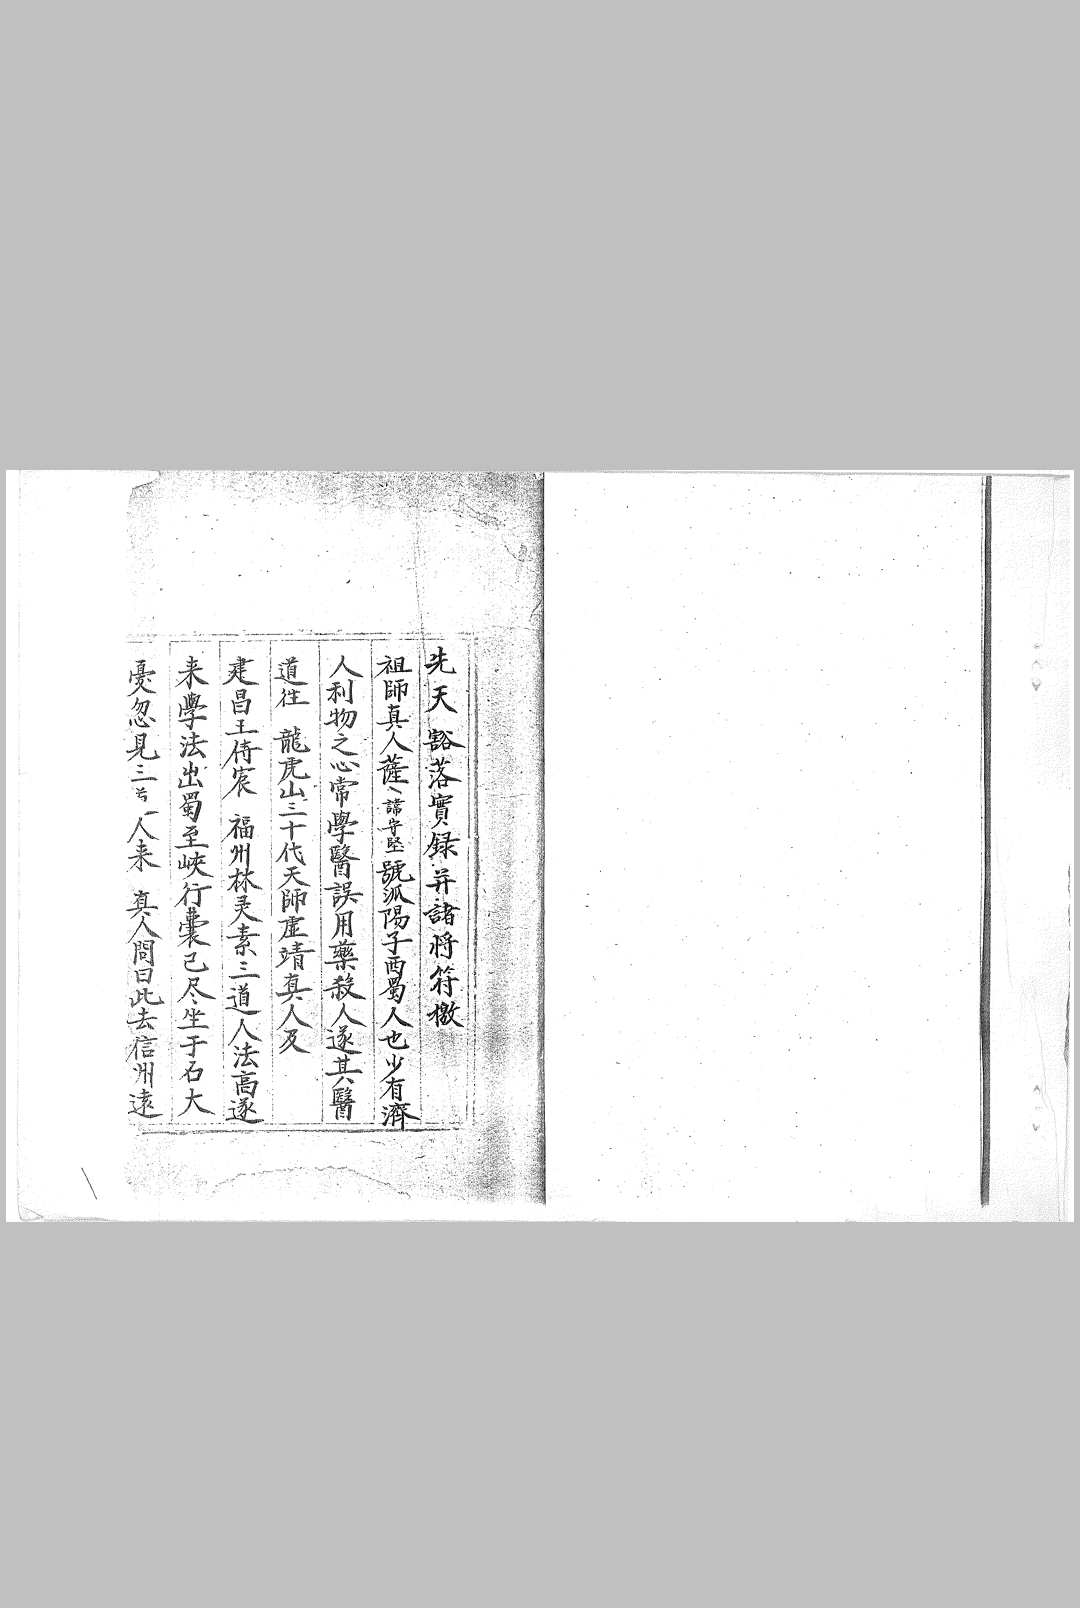 先天豁落實録并諸将符檄
祖師真人薩諱守堅號派陽子西蜀人也少有濟
人利物之心常學醫誤用藥殺人遂其醫
道往 龍虎山三十代天師虛靖真人及
建昌王侍宸 福州林灵素三道人法高遂
来學法出蜀至峽行囊已尽坐于石大
憂忽見三 人来 真人問曰此去信州遠